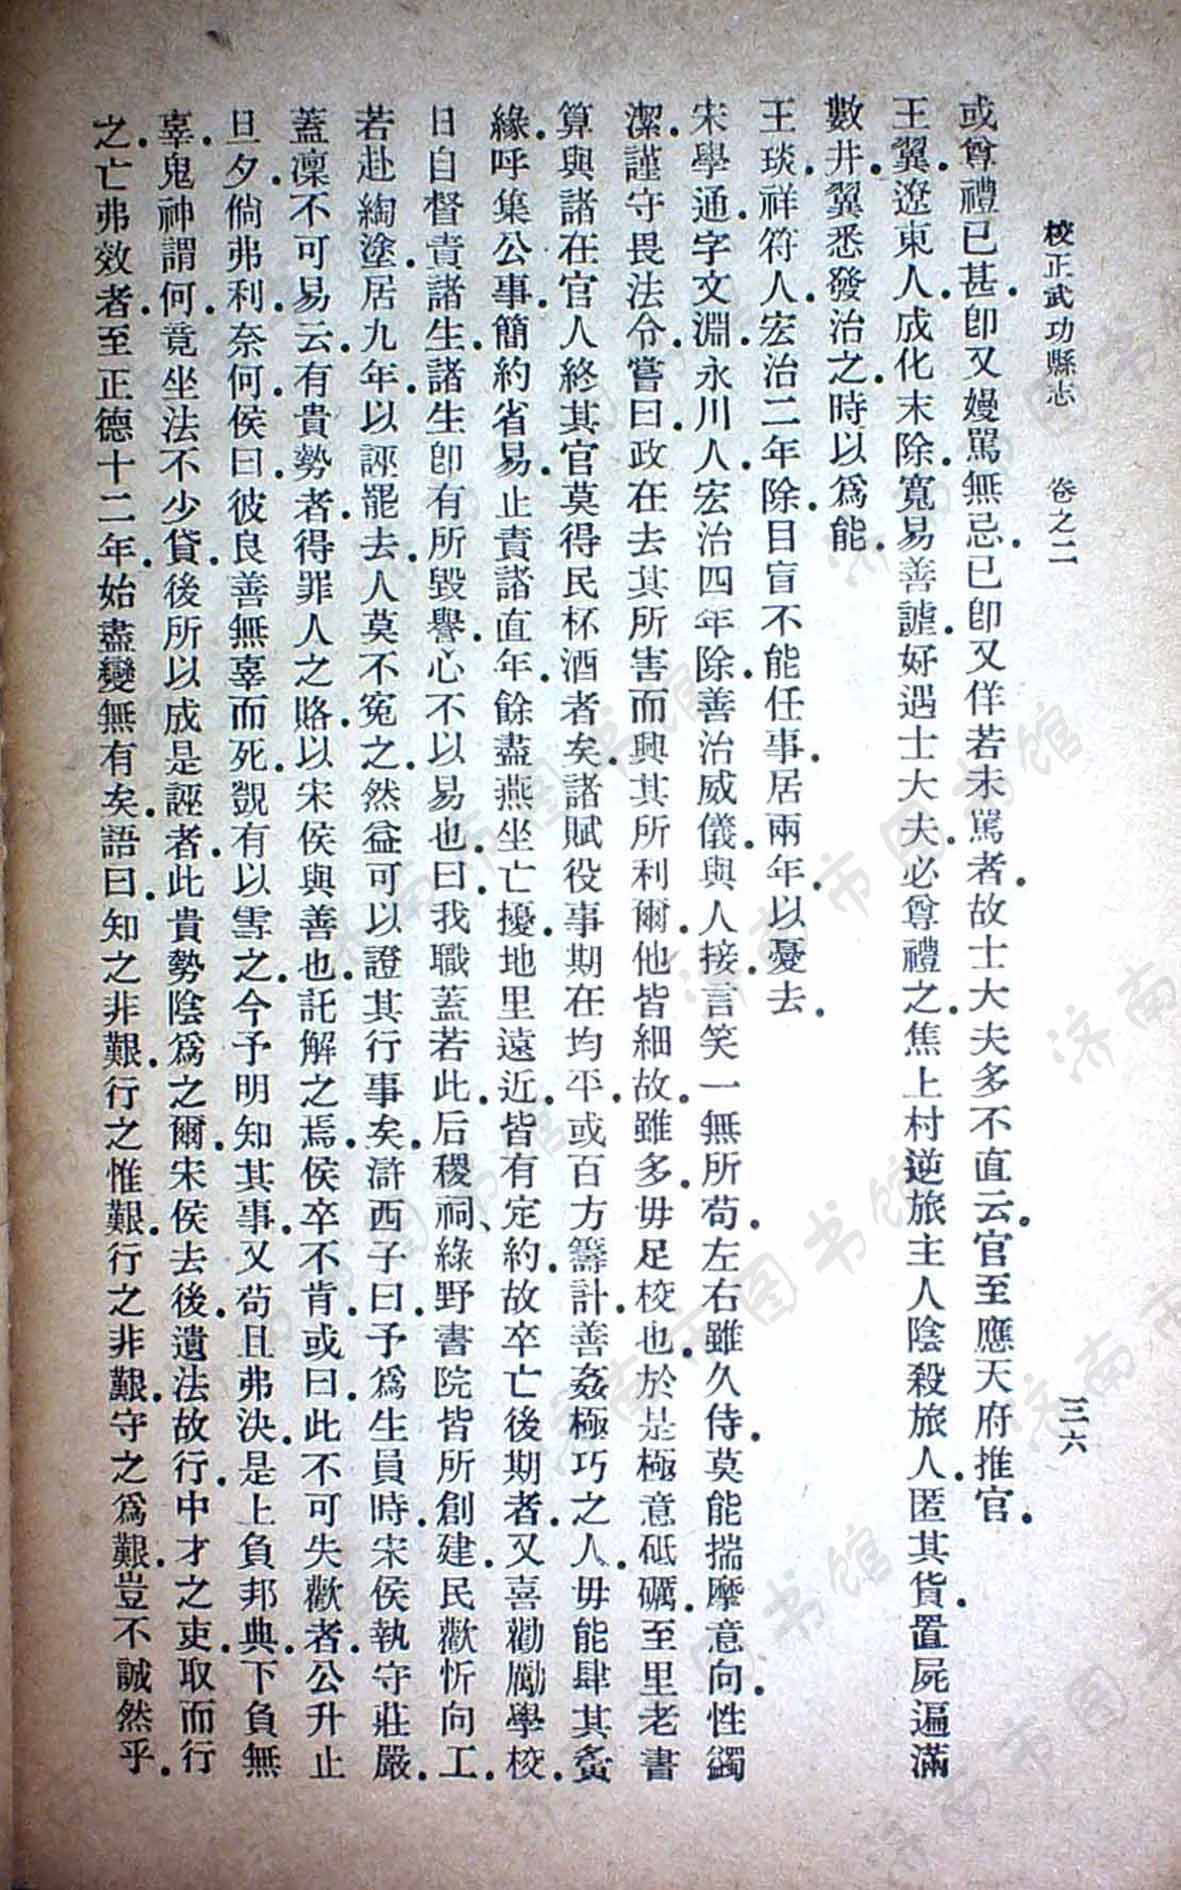 校正武功縣志　卷之二　三六
或尊禮已甚．卽又嫚駡無忌．已卽又佯若未駡者．故士大夫多不直云．官至應天府推官．
王翼．遼東人．成化末除．寬易善謔．好遇士大夫．必尊禮之．焦上村逆旅主人陰殺旅人．匿其貨．置屍遍滿
數井．翼悉發治之．時以爲能．
王琰．祥符人．宏治二年除．目盲不能任事．居兩年．以憂去．
宋學通．字文淵．永川人．宏治四年除．善治威儀．與人接．言笑一無所苟．左右雖久侍．莫能揣摩意向．性蠲
潔．謹守畏法令．嘗曰．政在去其所害而興其所利爾．他皆細故．雖多．毋足校也．於是極意砥礪．至里老書
算與諸在官人．終其官莫得民杯酒者矣．諸賦役事期在均平．或百方籌計．善姦極巧之人．毋能肆其夤
緣．呼集公事．簡約省易．止責諸直年．餘盡燕坐亡擾．地里遠近．皆有定約．故卒亡後期者．又喜勸勵學校．
日自督責諸生．諸生卽有所毀譽．心不以易也．曰．我職蓋若此．后稷祠、綠野書院皆所創建．民歡忻向工．
若赴綯塗．居九年．以誣罷去．人莫不冤之．然益可以證其行事矣．滸西子曰．予爲生員時．宋侯執守莊嚴．
蓋凜不可易云．有貴勢者．得罪人之賂．以宋侯與善也．託解之焉．侯卒不肯．或曰．此不可失歡者．公升止
旦夕．倘弗利．奈何．侯曰．彼良善無辜而死．覬有以雪之．今予明知其事．又苟且弗決．是上負邦典．下負無
辜．鬼神謂何．竟坐法不少貸．後所以成是誣者．此貴勢陰爲之爾．宋侯去後．遺法故行．中才之吏．取而行
之．亡弗效者．至正德十二年．始盡變無有矣．語曰．知之非艱．行之惟艱．行之非艱．守之爲艱．豈不誠然乎．
济南市图书馆